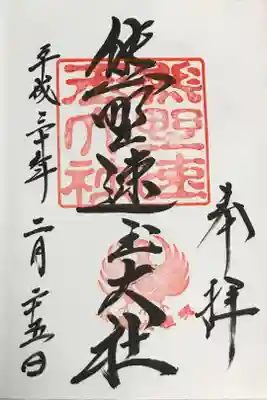 奉拝
熊野速玉大社
平成三十年二月二十五日
熊野速玉大社